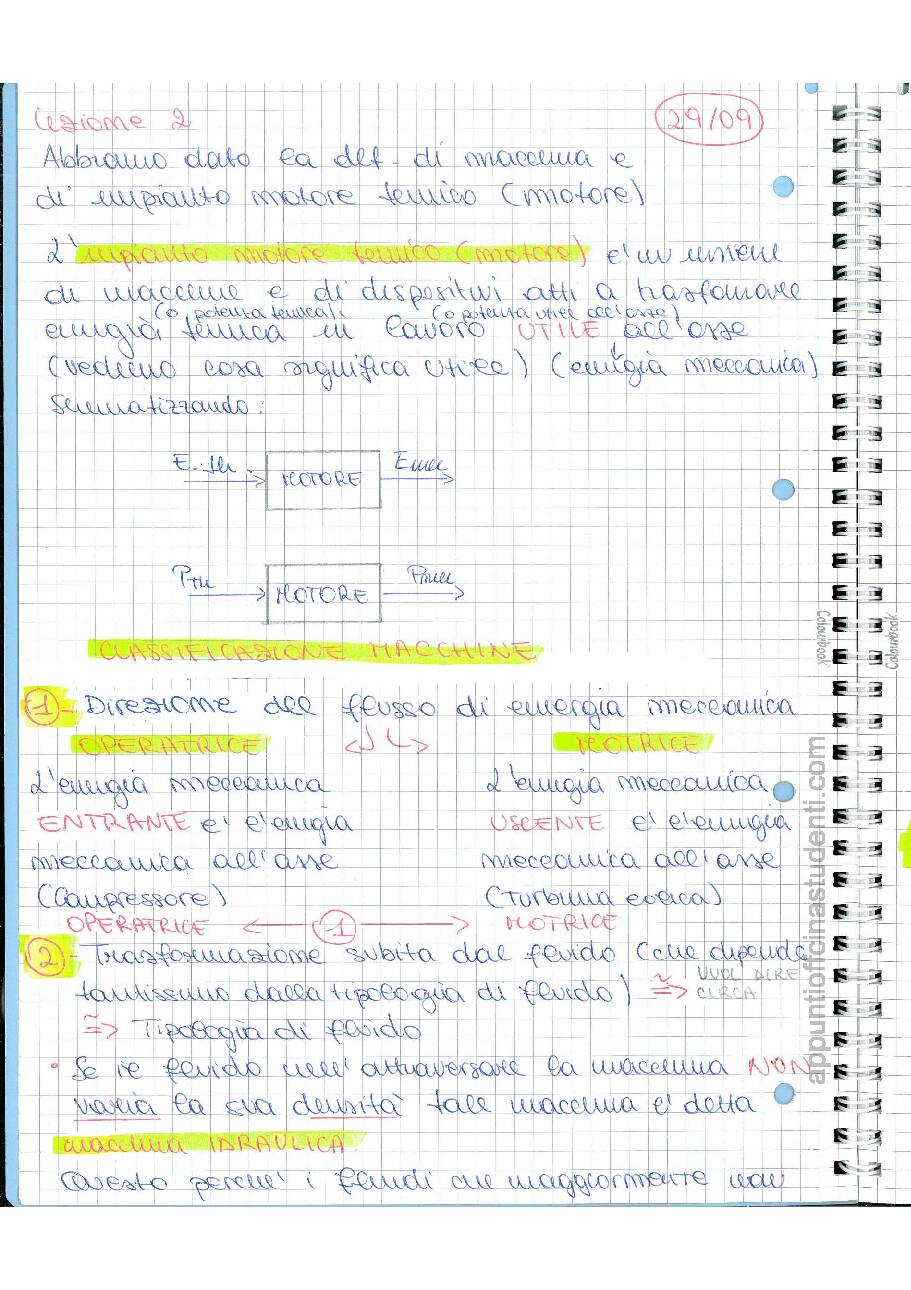 Lezione 2
29/09
Abbiamo dato la def. di macchina e
di impianto motore termico (motore)
L'impianto motore termico (motore) e' un insieme
di macchine e di dispositivi atti a trasformare
(o potenza termica) (o potenza utile all'asse)
energia termica in lavoro UTILE all'asse
(vedremo cosa significa utile) (energia meccanica)
Schematizzando:
E th MOTORE Emec
Pth MOTORE Pmec
CLASSIFICAZIONE MACCHINE
1 - Direzione del flusso di energia meccanica
OPERATRICE MOTRICE
L'energia meccanica
ENTRANTE e' l'energia
meccanica all'asse
(Compressore)
L'energia meccanica
USCENTE e' l'energia
meccanica all'asse
(Turbina eolica)
OPERATRICE ← 1 → MOTRICE
2 - Trasformazione subita dal fluido (che dipende
tantissimo dalla tipologia di fluido) ≅> VUOL DIRE
CIRCA
≅> Tipologia di fluido
• Se il fluido nell'attraversare la macchina NON
varia la sua densità tale macchina e' detta
macchina IDRAULICA
Questo perche' i fluidi che maggiormente non
Colourbook
Colourbook
appuntiofficinastudenti.com